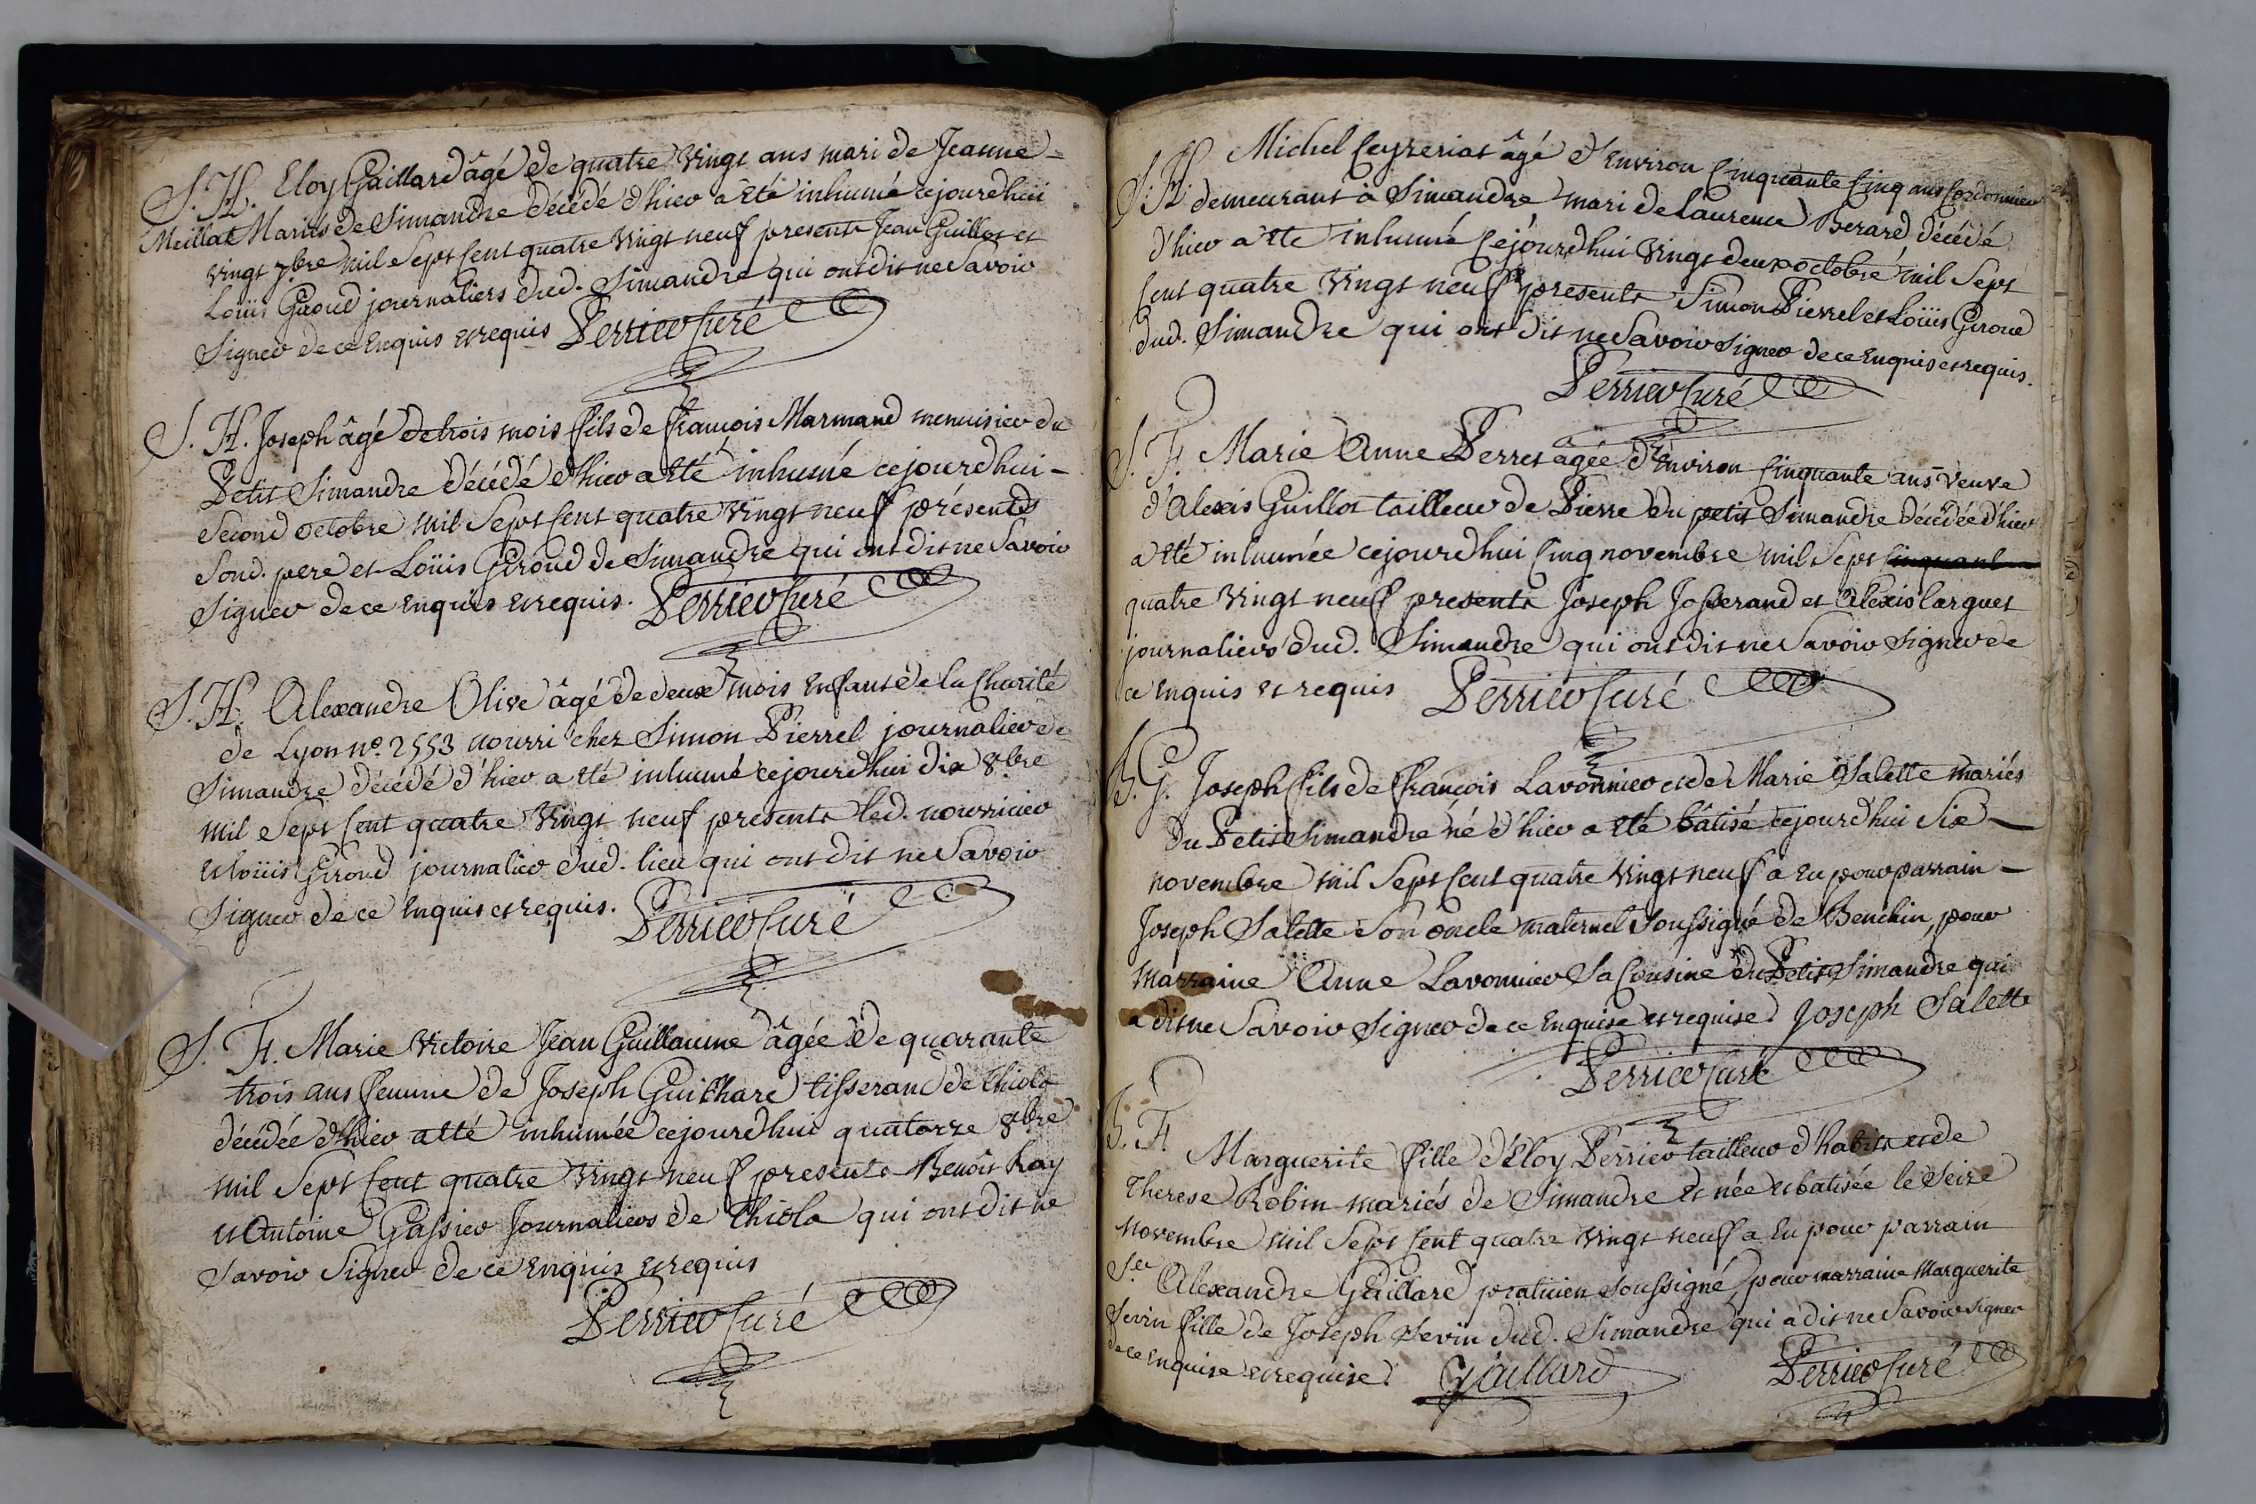 S. H. Eloy Gaillard âgé de quatre vingt ans mari de Jeanne
Meillat Mariés de Simandre décédé d'hier a été inhumé cejourdhui
vingt 7bre mil sept cent quatre vingt neuf presents Jean Guillot et
Loüis Giroud journaliers dud. Simandre qui ont dit ne savoir
signer de ce enquis et requis Perrier Curé
S. H. Joseph âgé de trois mois fils de françois Marmand menuisier du
Petit Simandre décédé d'hier a eté inhumé cejourdhui
second octobre mil sept cent quatre vingt neuf présents
sond. pere et Loüis Giroud de Simandre qui ont dit ne savoir
signer de ce enquis et requis. Perrier Curé
S. H. Alexandre Olive âgé de deux mois enfant de la Charité
de Lyon no. 2553 nourri chez Simon Pierrel journalier de
Simandre décédé d'hier a eté inhumé cejourdhui dix 8bre
mil sept cent quatre vingt neuf presents led. nourricier
et Loüis Giroud journalier dud. lieu qui ont dit ne savoir
signer de ce enquis et requis. Perrier Curé
S. F. Marie Victoire Jean Guillaume âgée de quarante
trois ans femme de Joseph Guichard tisserand de Thiola
décédée d'hier a eté inhumée cejourdhui quatorze 8bre
mil sept cent quatre vingt neuf presents Benoit Ray
et Antoine Gassier Journaliers de Thiola qui ont dit ne
savoir signer de ce enquis et requis
Perrier Curé
Michel Ceyzeriat âgé d'environ cinquante cinq ans Cordonnier
S. H. demeurant à Simandre mari de Laurence Berard, décédé
d'hier a eté inhumé cejourdhui vingt deux octobre mil sept
cent quatre vingt neuf presents Simon Pierrel et Loüis Giroud
dud. Simandre qui ont dit ne savoir signer de ce enquis et requis.
Perrier Curé
S. F. Marie Anne Perret agée d'environ cinquante ans veuve
d'Alexis Guillot tailleur de Pierre du petit Simandre décédée d'hier
a eté inhumée cejourdhui cinq novembre mil sept
quatre vingt neuf presents Joseph Josserand et Alexis Carguet
journaliers dud. Simandre qui ont dit ne savoir signer de
ce enquis et requis Perrier Curé
B. G. Joseph fils de françois Lavonnier et de Marie Salette mariés
du Petit Simandre né d'hier a eté bâtisé cejourdhui six
novembre mil sept cent quatre vingt neuf a eu pour parrain
Joseph Salette son oncle maternel soussigné de Benchin, pour
marraine Anne Lavonnier sa Cousine du Petit Simandre qui
a dit ne savoir signer de ce enquise et requise Joseph Salette
Perrier Curé
B. F. Marguerite fille d'Eloy Perrier tailleur d'habits et de
Therese Robin mariés de Simandre et née et batisée le seize
novembre mil sept cent quatre vingt neuf a eu pour parrain
Sr Alexandre Gaillard praticien soussigné, pour marraine Marguerite
Sevin fille de Joseph Sevin dud. Simandre qui a dit ne savoir signer
de ce enquise et requise Gaillard Perrier Curé